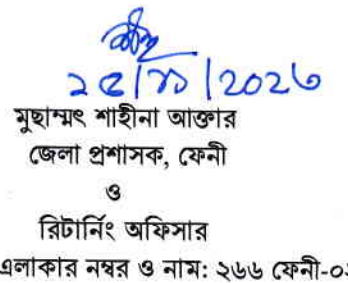 মুছাম্মৎ শাহীনা আক্তার
জেলা প্রশাসক, ফেনী
ও
রিটার্নিং অফিসার
এলাকার নম্বর ও নাম: ২৬৬ ফেনী-০